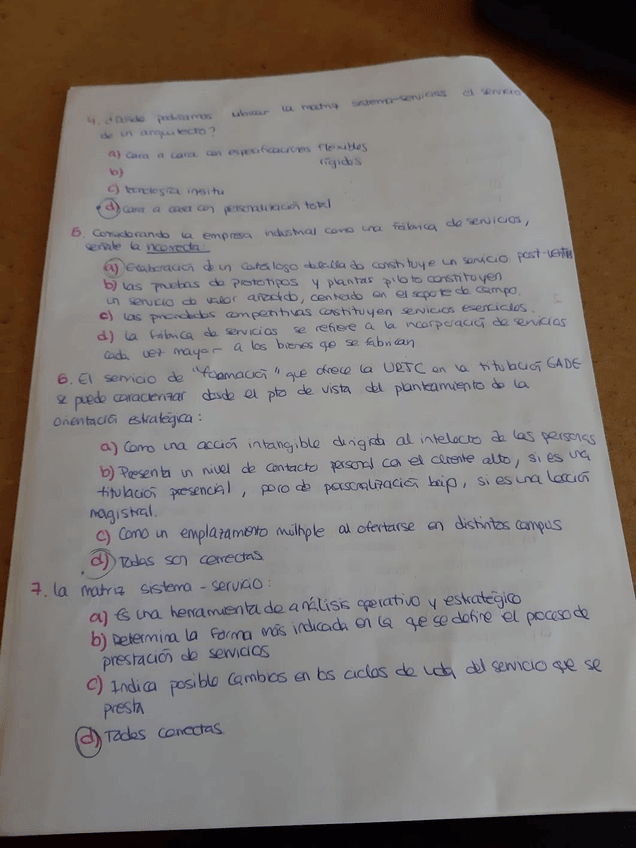 4. ¿Dónde podríamos ubicar la matriz sistema-servicios el servicio
de un arquitecto?
a) cara a cara con especificaciones flexibles
b) rígidos
c) tecnología in situ
d) cara a cara con personalización total
5. Considerando la empresa industrial como una fábrica de servicios,
señale la incorrecta
a) Elaboración de un catálogo detallado constituye un servicio post-venta
b) las pruebas de prototipos y plantas piloto constituyen
un servicio de valor añadido, centrado en el soporte de campo.
c) las prioridades competitivas constituyen servicios esenciales.
d) la fábrica de servicios se refiere a la incorporación de servicios
cada vez mayor a los bienes qe se fabrican
6. El servicio de "formación" que ofrece la UPTC en la titulación GADE
se puede caracterizar desde el pto de vista del planteamiento de la
orientación estratégica:
a) Como una acción intangible dirigida al intelecto de las personas
b) Presenta un nivel de contacto personal con el cliente alto, si es una
titulación presencial, pero de personalización bajo, si es una lección
magistral.
c) Como un emplazamiento múltiple al ofertarse en distintos campus
d) Todas son correctas
7. La matriz sistema - servicio:
a) Es una herramienta de análisis operativo y estratégico
b) Determina la forma más indicada en la qe se define el proceso de
prestación de servicios
c) Indica posible cambios en los ciclos de vida del servicio que se
presta
d) Todas correctas